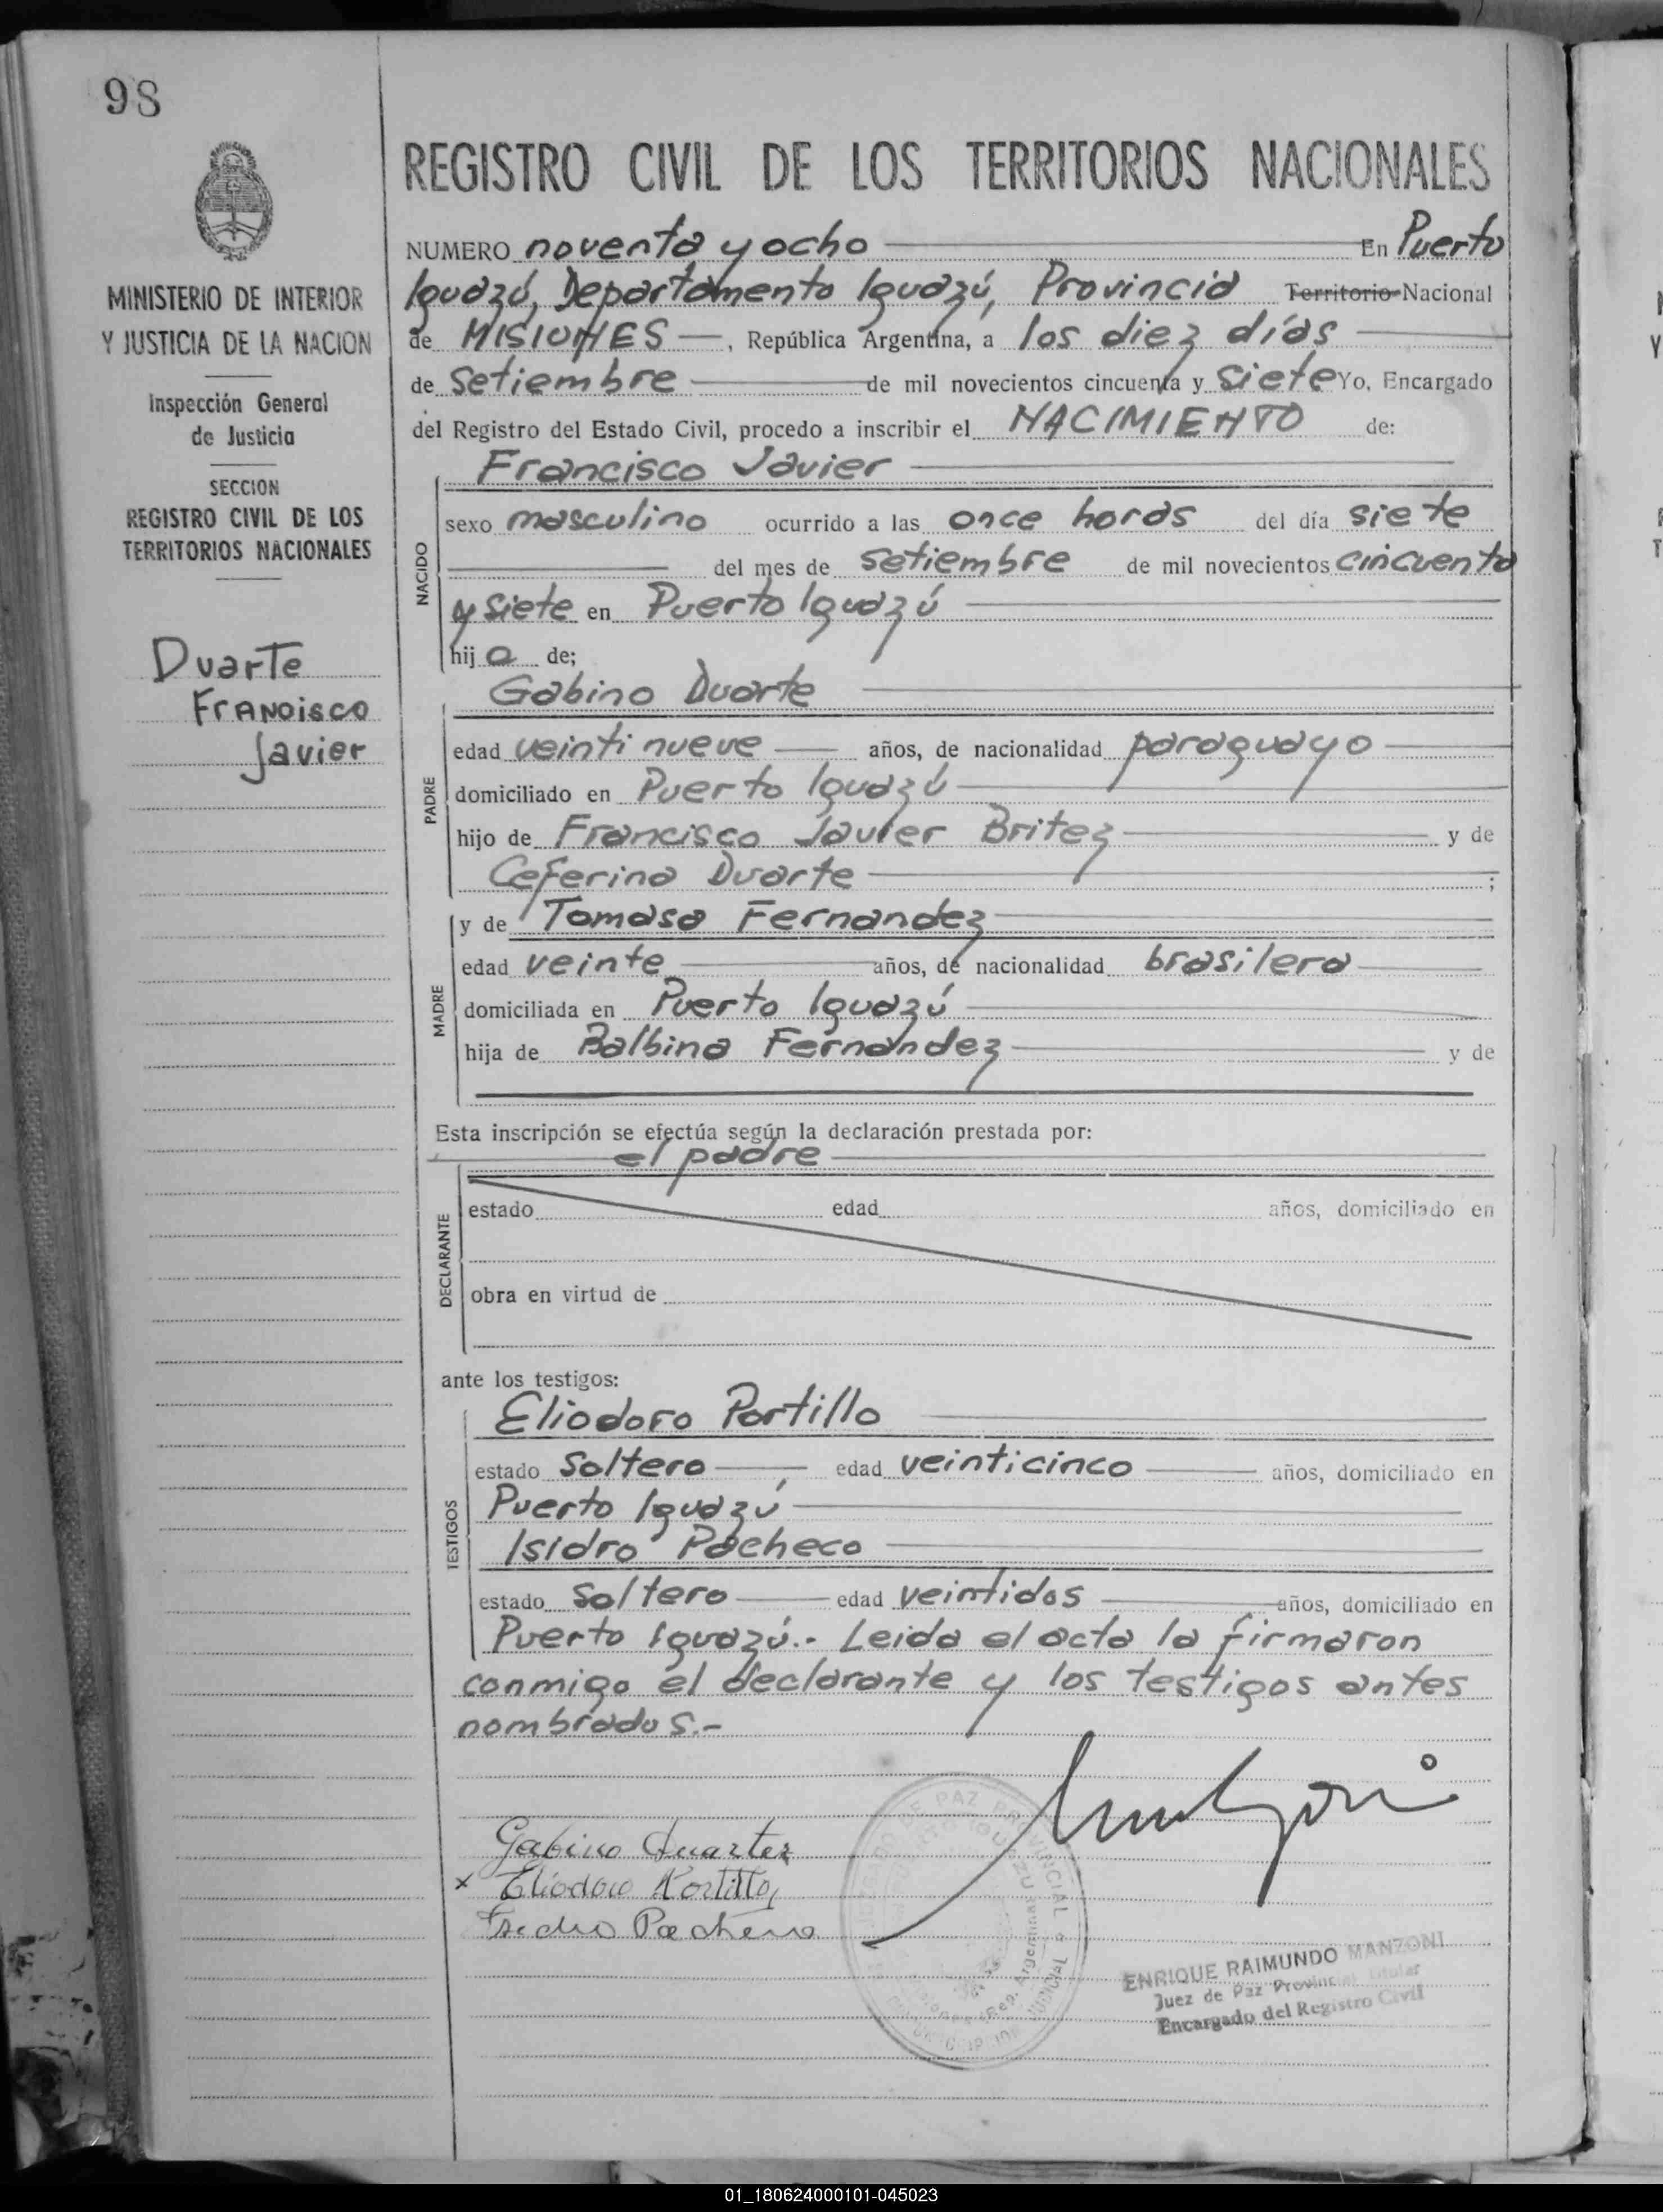 98
MINISTERIO DE INTERIOR
Y JUSTICIA DE LA NACION
Inspección General
de Justicia
SECCION
REGISTRO CIVIL DE LOS
TERRITORIOS NACIONALES
Duarte
Francisco
Javier
REGISTRO CIVIL DE LOS TERRITORIOS NACIONALES
NUMERO noventa y ocho En Puerto
Iguazú, Departamento Iguazú, Provincia Territorio Nacional
de MISIONES, República Argentina, a los diez días
de Setiembre de mil novecientos cincuenta y siete Yo, Encargado
del Registro del Estado Civil, procedo a inscribir el NACIMIENTO de:
Francisco Javier
NACIDO
sexo masculino ocurrido a las once horas del día siete
del mes de setiembre de mil novecientos cincuenta
y siete en Puerto Iguazú
hijo de;
Gabino Duarte
PADRE
edad veinti nueve años, de nacionalidad paraguayo
domiciliado en Puerto Iguazú
hijo de Francisco Javier Britez y de
Ceferina Duarte ;
y de Tomasa Fernandez
MADRE
edad veinte años, de nacionalidad brasilera
domiciliada en Puerto Iguazú
hija de Balbina Fernández y de
Esta inscripción se efectúa según la declaración prestada por:
el padre
DECLARANTE
estado edad años, domiciliado en
obra en virtud de
ante los testigos:
Eliodoro Portillo
TESTIGOS
estado Soltero edad veinticinco años, domiciliado en
Puerto Iguazú
Isidro Pacheco
estado Soltero edad veintidos años, domiciliado en
Puerto Iguazú.- Leida el acta la firmaron
conmigo el declarante y los testigos antes
nombrados.-
Gabino Duarte
x Eliodoro Portillo
Isidro Pacheco
ENRIQUE RAIMUNDO MANZONI
Juez de Paz Provincial Titular
Encargado del Registro Civil
01_180624000101-045023